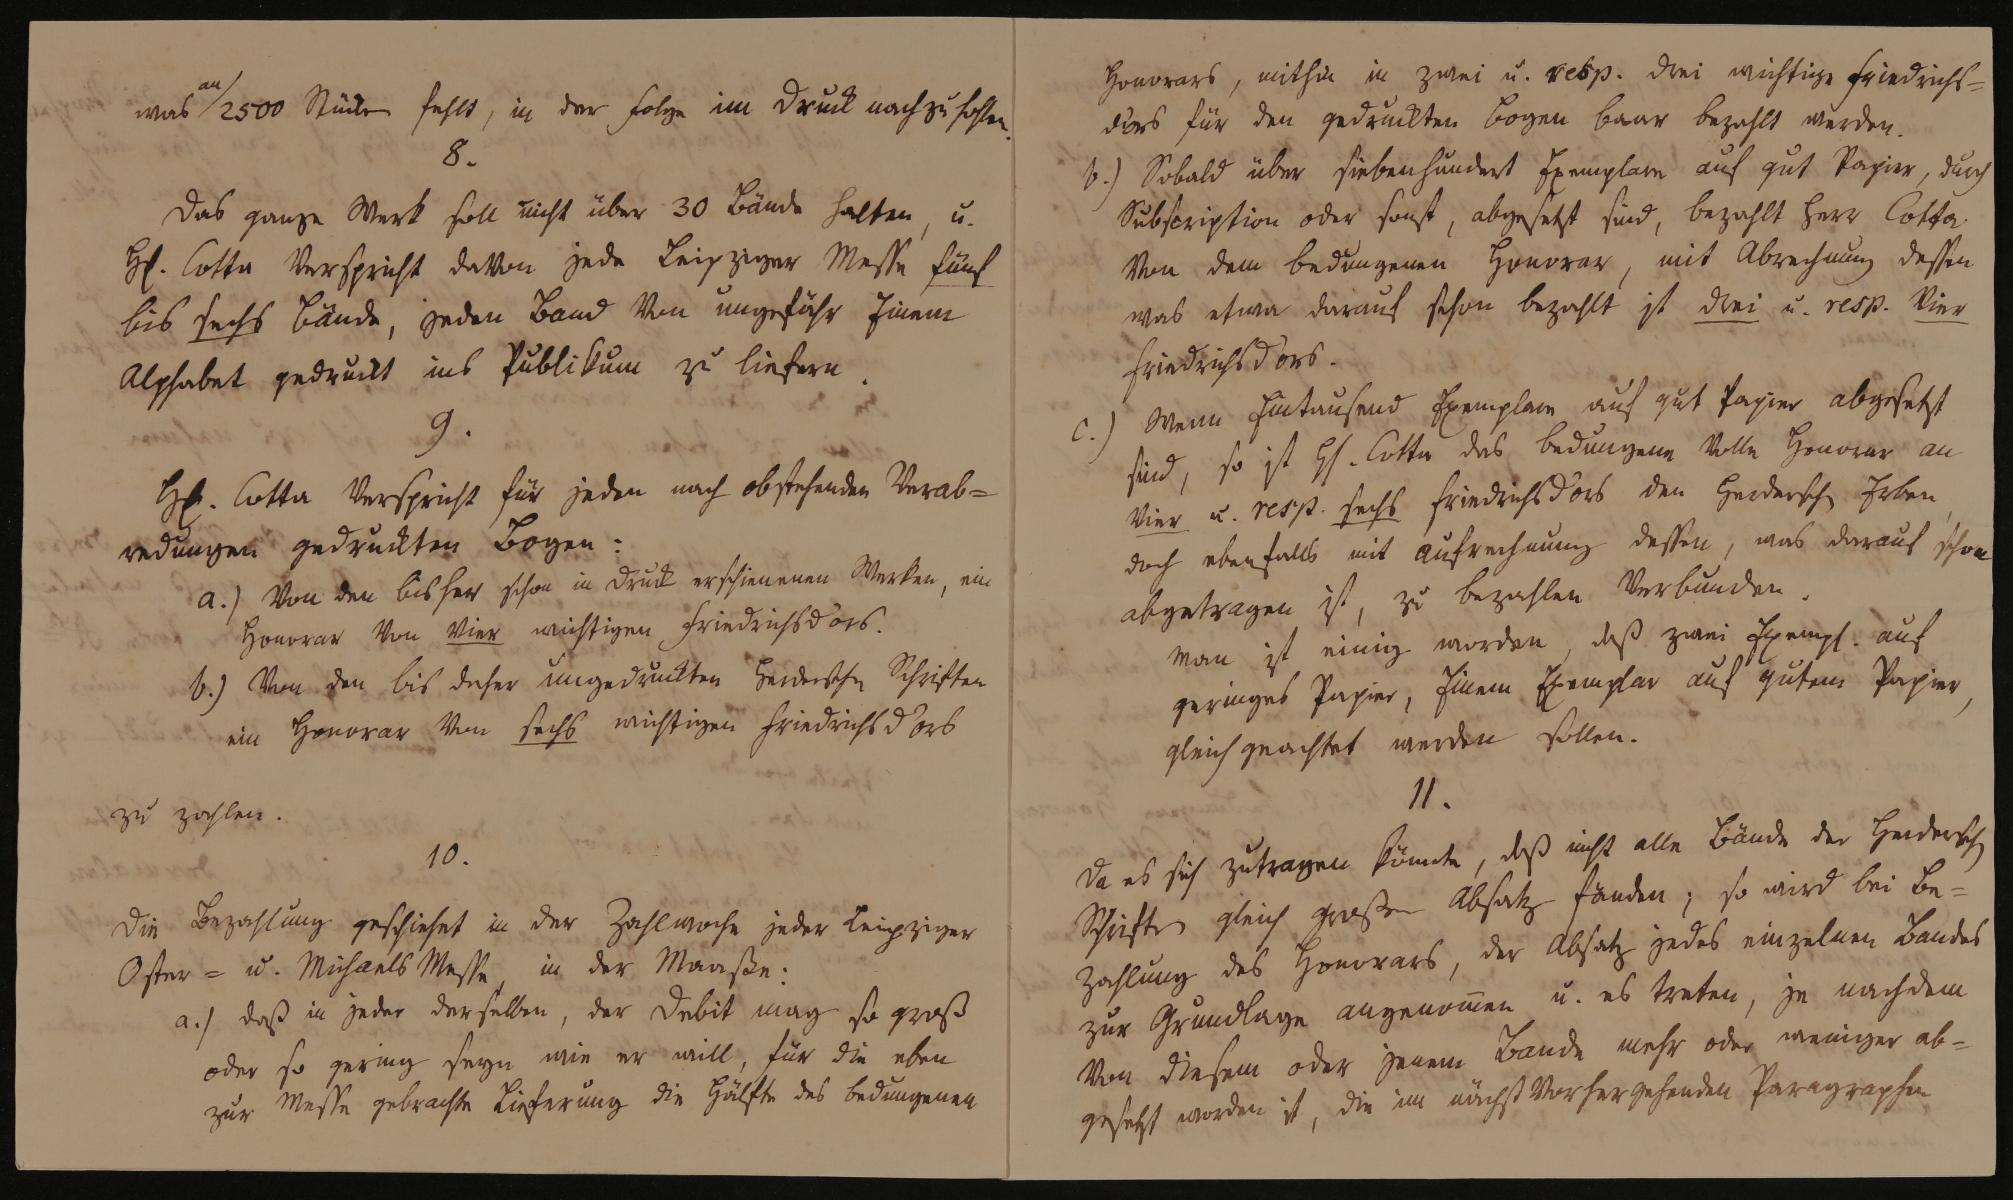 was an/2500 Stücken fehlt, in der Folge im Druck nachzuholen.
8.
Das ganze Werk soll nicht über 30 Bände halten, u.
Hl. Cotta verspricht davon jede Leipziger Messe fünf
bis sechs Bände, jeden Band von ungefähr Einem
Alphabet gedruckt ins Publikum zu liefern.
9.
Hl. Cotta verspricht für jeden nach obstehenden Verab=
redungen gedruckten Bogen:
a.) Von den bisher schon in Druck erschienenen Werken, ein
Honorar von vier wichtigen Friedrichsd'ors.
b.) Von den bis daher ungedruckten Herderschen Schriften
ein Honorar von sechs wichtigen Friedrichsd'ors
zu zahlen.
10.
Die Bezahlung geschiehet in der Zahlwoche jeder Leipziger
Oster= u. Michaels Messe, in der Maaße:
a.) daß in jeder derselben, der Debit mag so groß
oder so gering seyn wie er will, für die eben
zur Messe gebrachte Lieferung die Hälfte des bedungenen
Honorars, mithin in zwei u. resp. drei wichtige Friedrichs=
dors für den gedruckten Bogen baar bezahlt werden.
b.) Sobald über siebenhundert Exemplare auf gut Papier, durch
Subscription oder sonst, abgesetzt sind, bezahlt Herr Cotta
von dem bedungenen Honorar, mit Abrechnung dessen
was etwa darauf schon bezahlt ist drei u. resp. vier
Friedrichsd'ors.
c.) Wenn Eintausend Exemplare auf gut Papier abgesetzt
sind, so ist Hl. Cotta das bedungene volle Honorar an
vier u. resp. sechs Friedrichsd'ors den Herdersch Erben,
doch ebenfalls mit Aufrechnung dessen, was darauf schon
abgetragen ist, zu bezahlen verbunden.
Man ist einig worden, daß zwei Exempl. auf
geringes Papier, Einem Exemplar auf gutem Papier,
gleich geachtet werden sollen.
11.
Da es sich zutragen könnte, daß nicht alle Bände der Herdersch
Schriften gleich großen Absatz fänden; so wird bei Be=
zahlung des Honorars, der Absatz jedes einzelnen Bandes
zur Grundlage angenommen u. es treten, je nachdem
von diesem oder jenem Bande mehr oder weniger ab=
gesetzt worden ist, die im nächst vorhergehenden Paragraphen